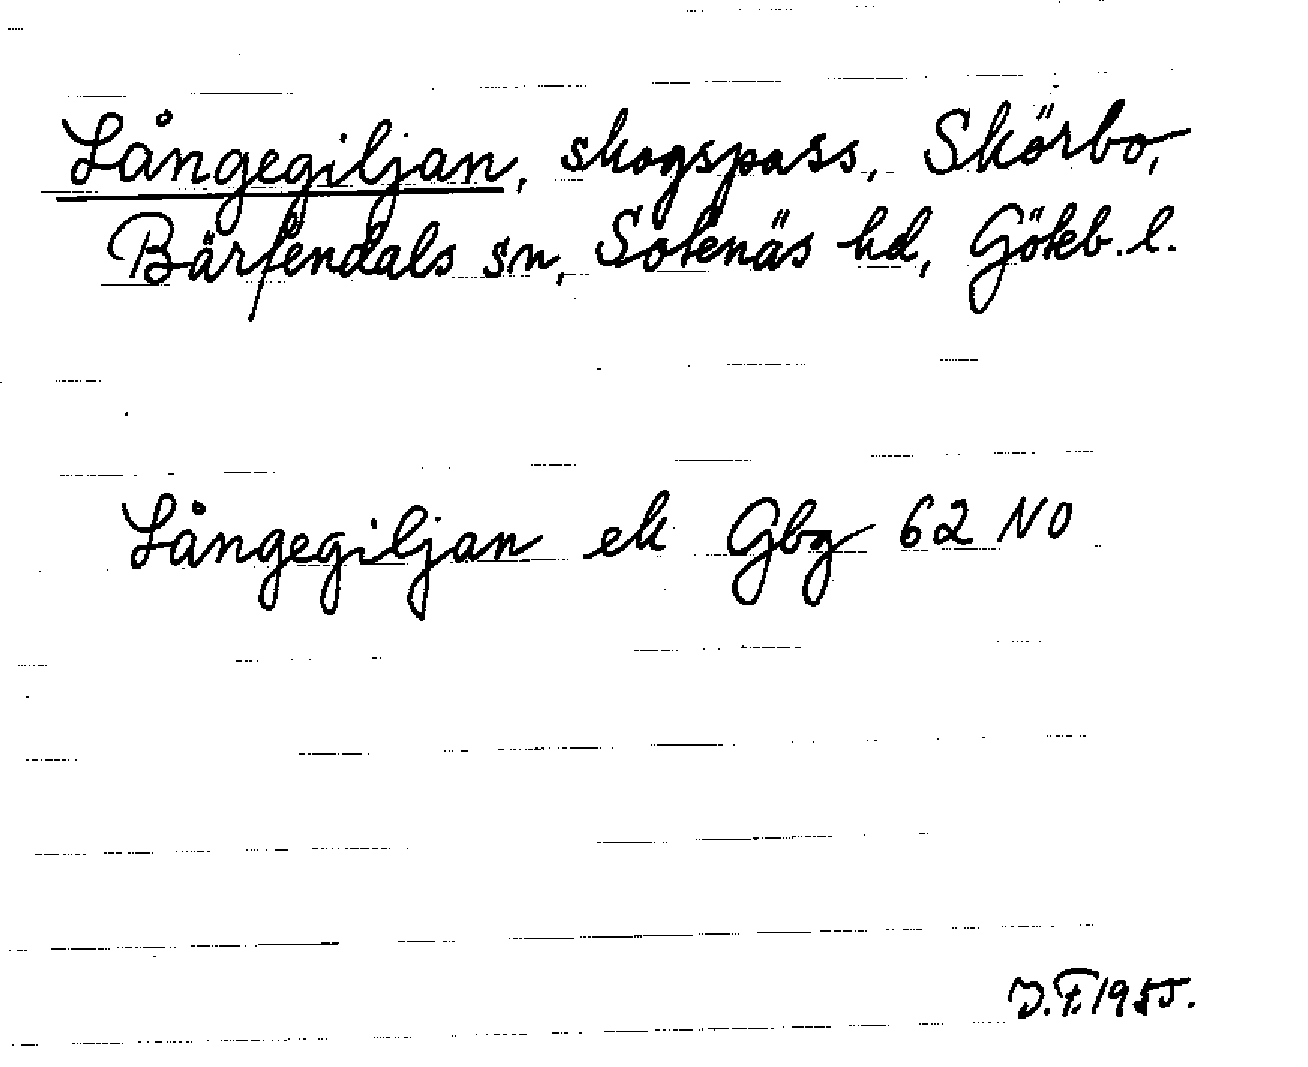 Långegiljan, skogspass, Skörbo,
Bärfendals sn, Sotenäs hd, Göteb. l.
Långegiljan ek Gbg 62 NO
D.F. 1955.